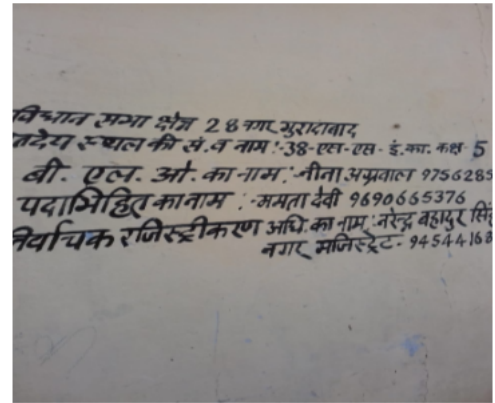 विधान सभा क्षेत्र 28 नगर मुरादाबाद
तदेय स्थल की सं. व नाम :- 38-एस-एस- इं.का. कक्ष 5
बी. एल. ओ. का नाम :- नीना अग्रवाल 9756285
पदाभिहित का नाम :- ममता देवी 9690665376
निर्वाचक रजिस्ट्रीकरण अधि. का नाम :- नरेन्द्र बहादुर सिंह
नगर मजिस्ट्रेट- 94544168